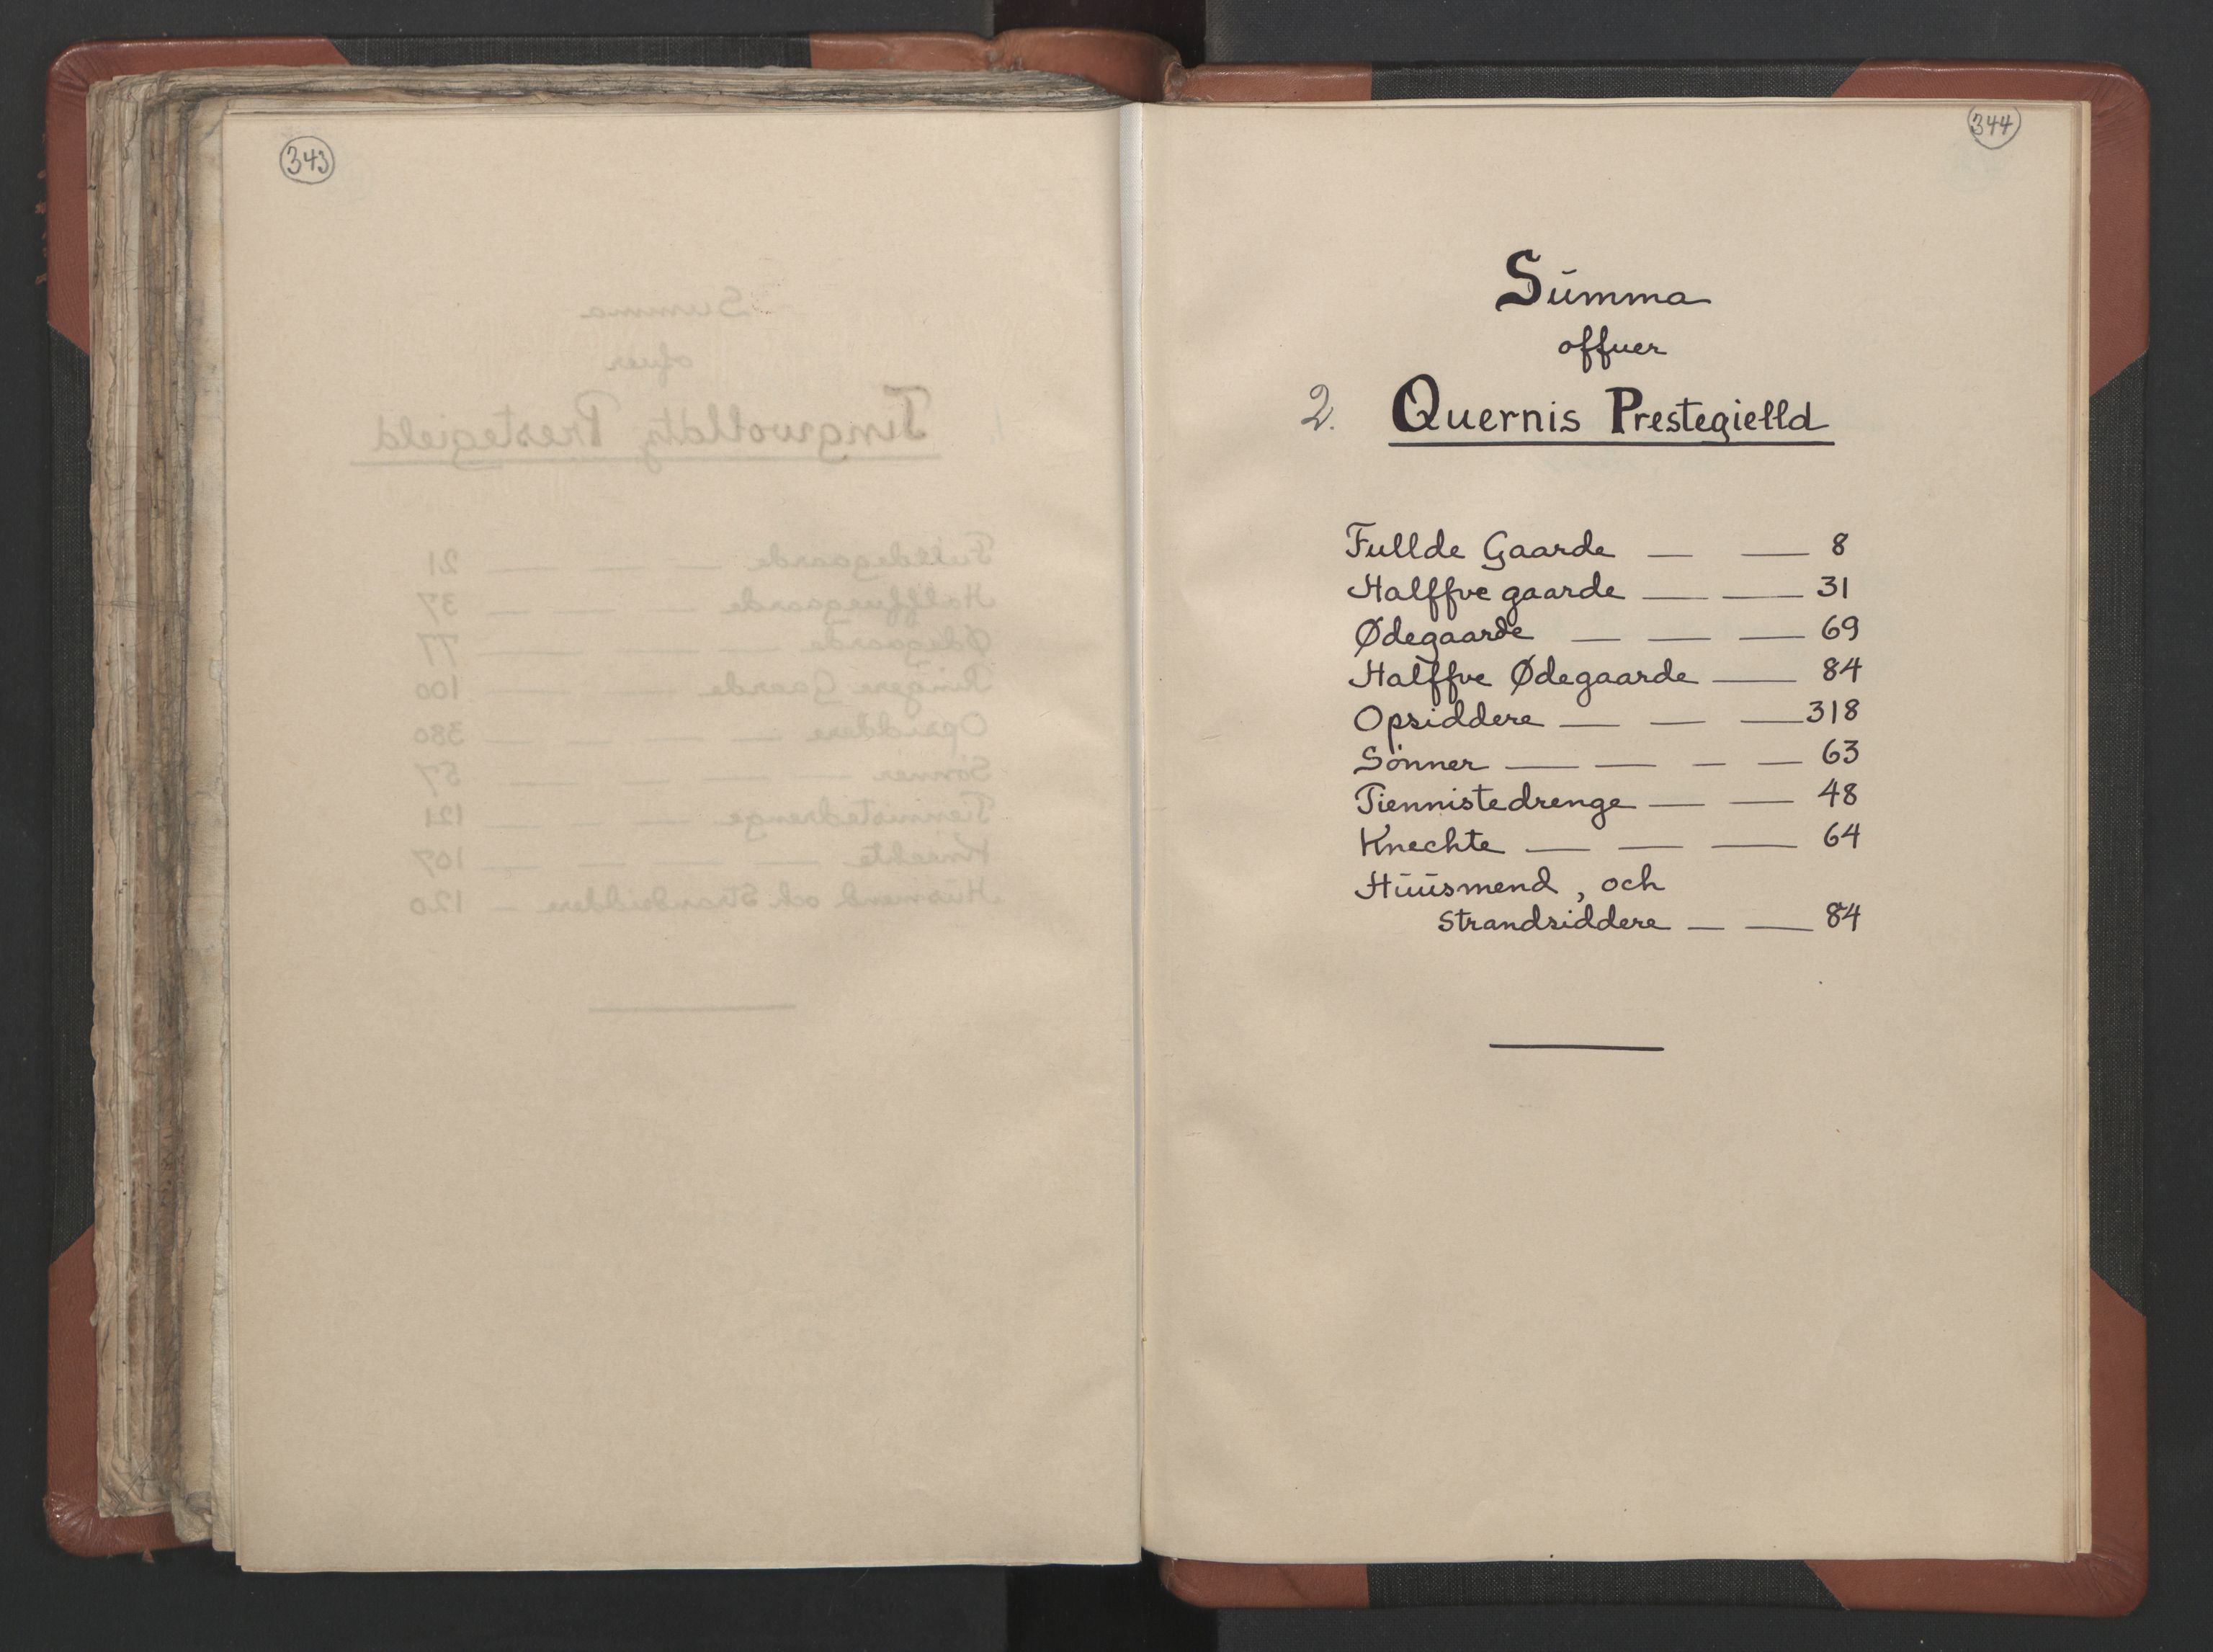 343
344
Summa
offuer
2. Quernis Prestegielld
Fullde Gaarde — — 8
Halffve gaarde — — 31
Ødegaarde — — — 69
Halffve Ødegaarde — 84
Opsiddere — — — 318
Sønner — — — — 63
Tiennistedrenge — — 48
Knechte — — — 64
Huusmend, och
Strandsiddere — — 84